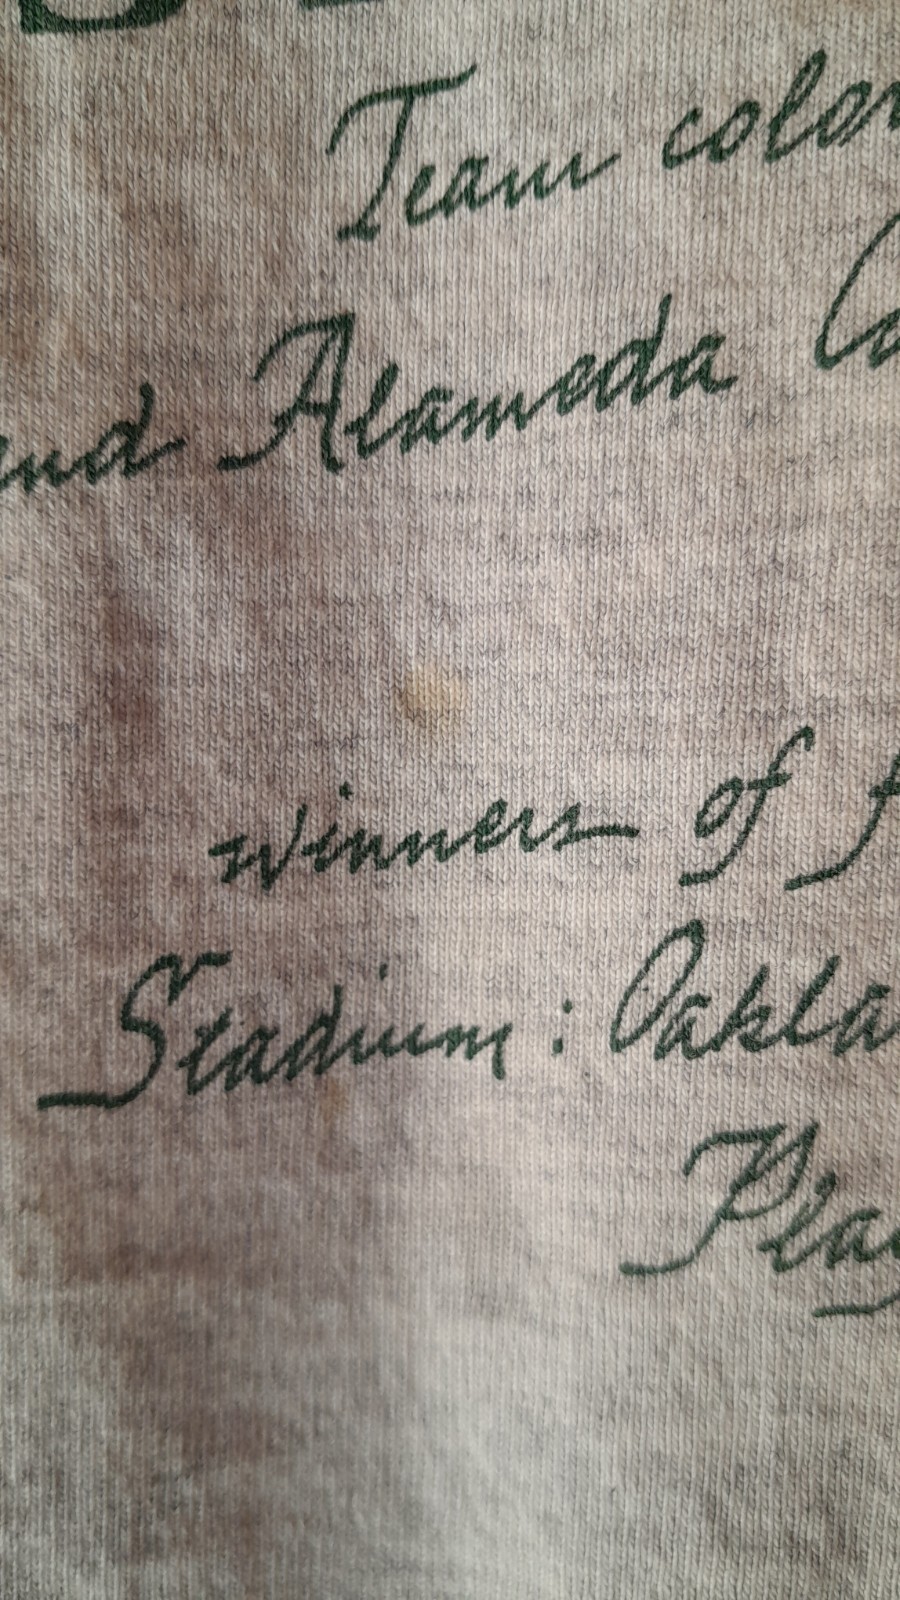 Team color
and Alameda Co
winners of f
Stadium: Oakla
Play